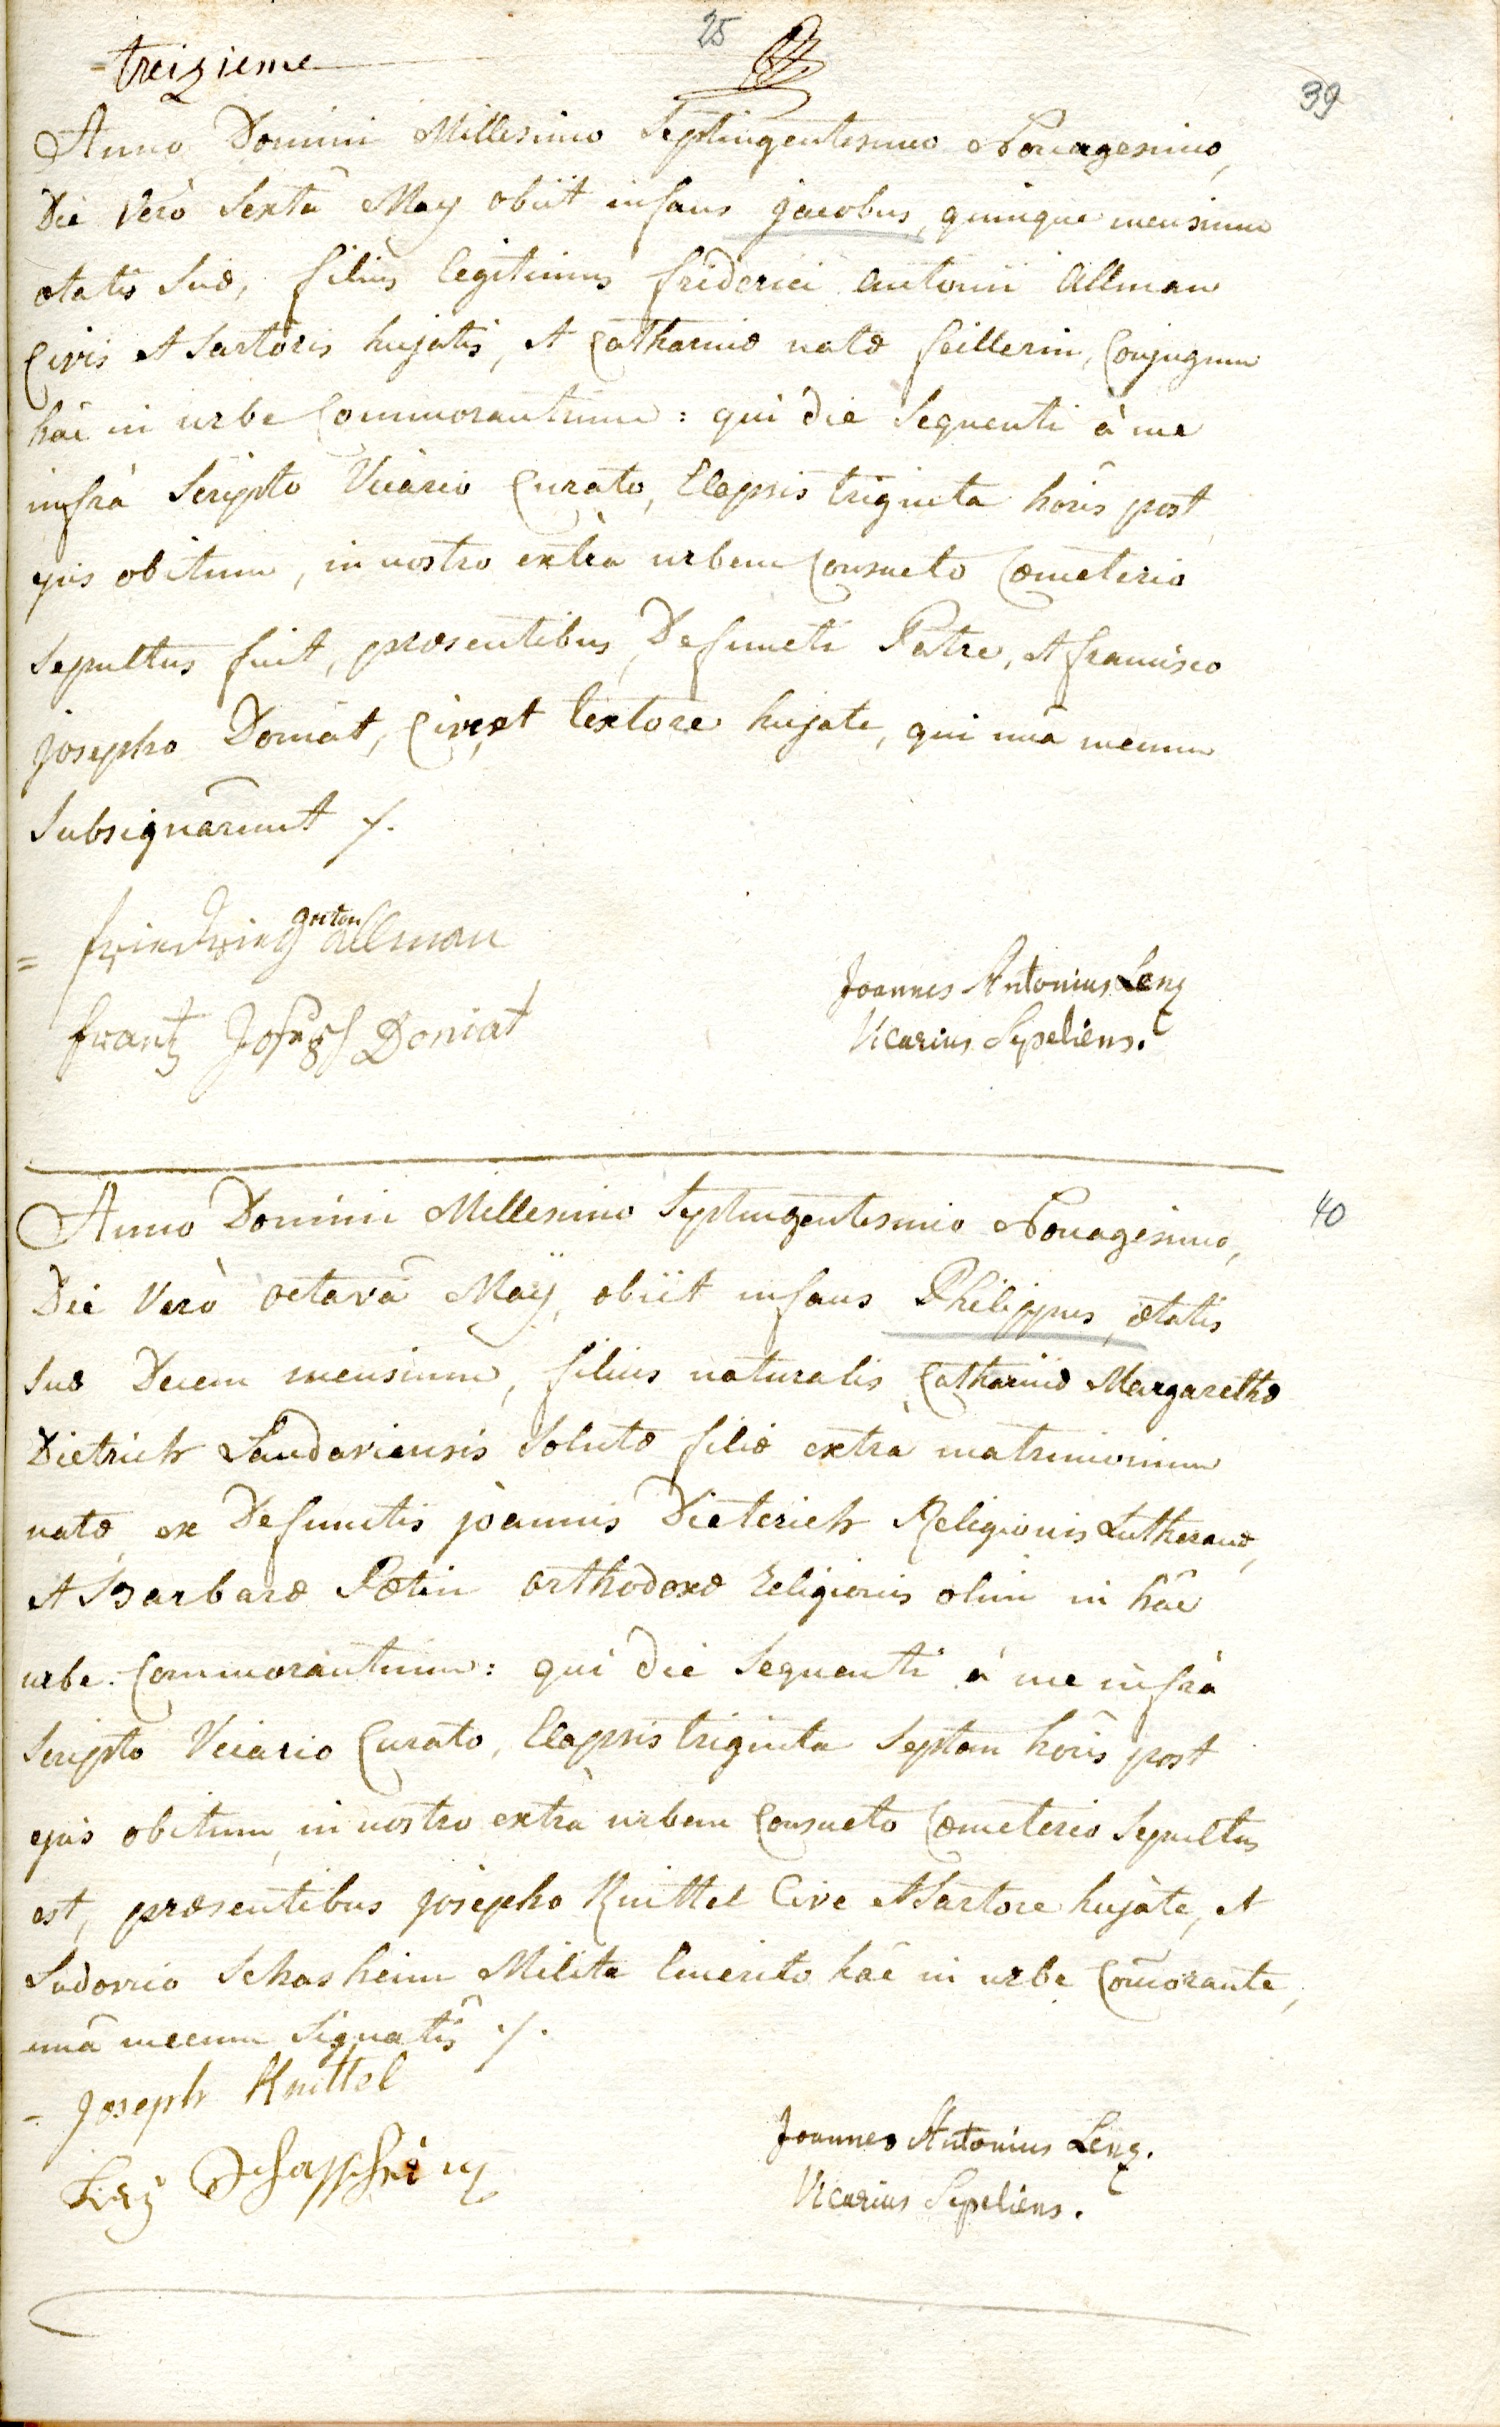 25
treizieme
39
Anno Domini Millesimo Septingentesimo Nonagesimo,
Die Verò Sextâ May obiit infans jacobus, quinque mensium
ætatis suæ, filius legitimus friderici antonii allman
Civis et Sartoris hujatis, et Catharinæ natæ feillerin, Conjugum
hâc in urbe Commorantium: qui die sequenti à me
infrà scripto Vicario Curato, Elapsis triginta horis post
ejus obitum, in nostro extrà urbem Consueto Cœmeterio
Sepultus fuit, præsentibus Defuncti Patre, et francisco
josepho Doniat, Cive et textore hujate, qui unà mecum
Subsignârunt ./.
= friedrich anton allman
frantz Joseph Doniat
Joannes Antonius Lenz
Vicarius Sepeliens.
Anno Domini Millesimo Septingentesimo Nonagesimo,
40
Die Verò octavâ Maÿ, obiit infans Philippus, ætatis
suæ Decem mensium, filius naturalis Catharinæ Margarethæ
Dietrich Landaviensis solutæ filiæ extrà matrimonium
natæ ex Defunctis joannis Dieterich Religionis Lutheranæ,
et Barbaræ Pætin orthodoxæ religionis olim in hâc
urbe Commorantium: qui die sequenti à me infrà
scripto Vicario Curato, Elapsis triginta septem horis post
ejus obitum, in nostro extrà urbem Consueto Cœmeterio Sepultus
est, præsentibus josepho Knittel Cive et Sartore hujate, et
Ludovico Schasheim Milite Emerito hâc in urbe Com̃orante,
unâ mecum signatis ./.
= Joseph Knittel
Joannes Antonius Lenz.
Vicarius Sepeliens.